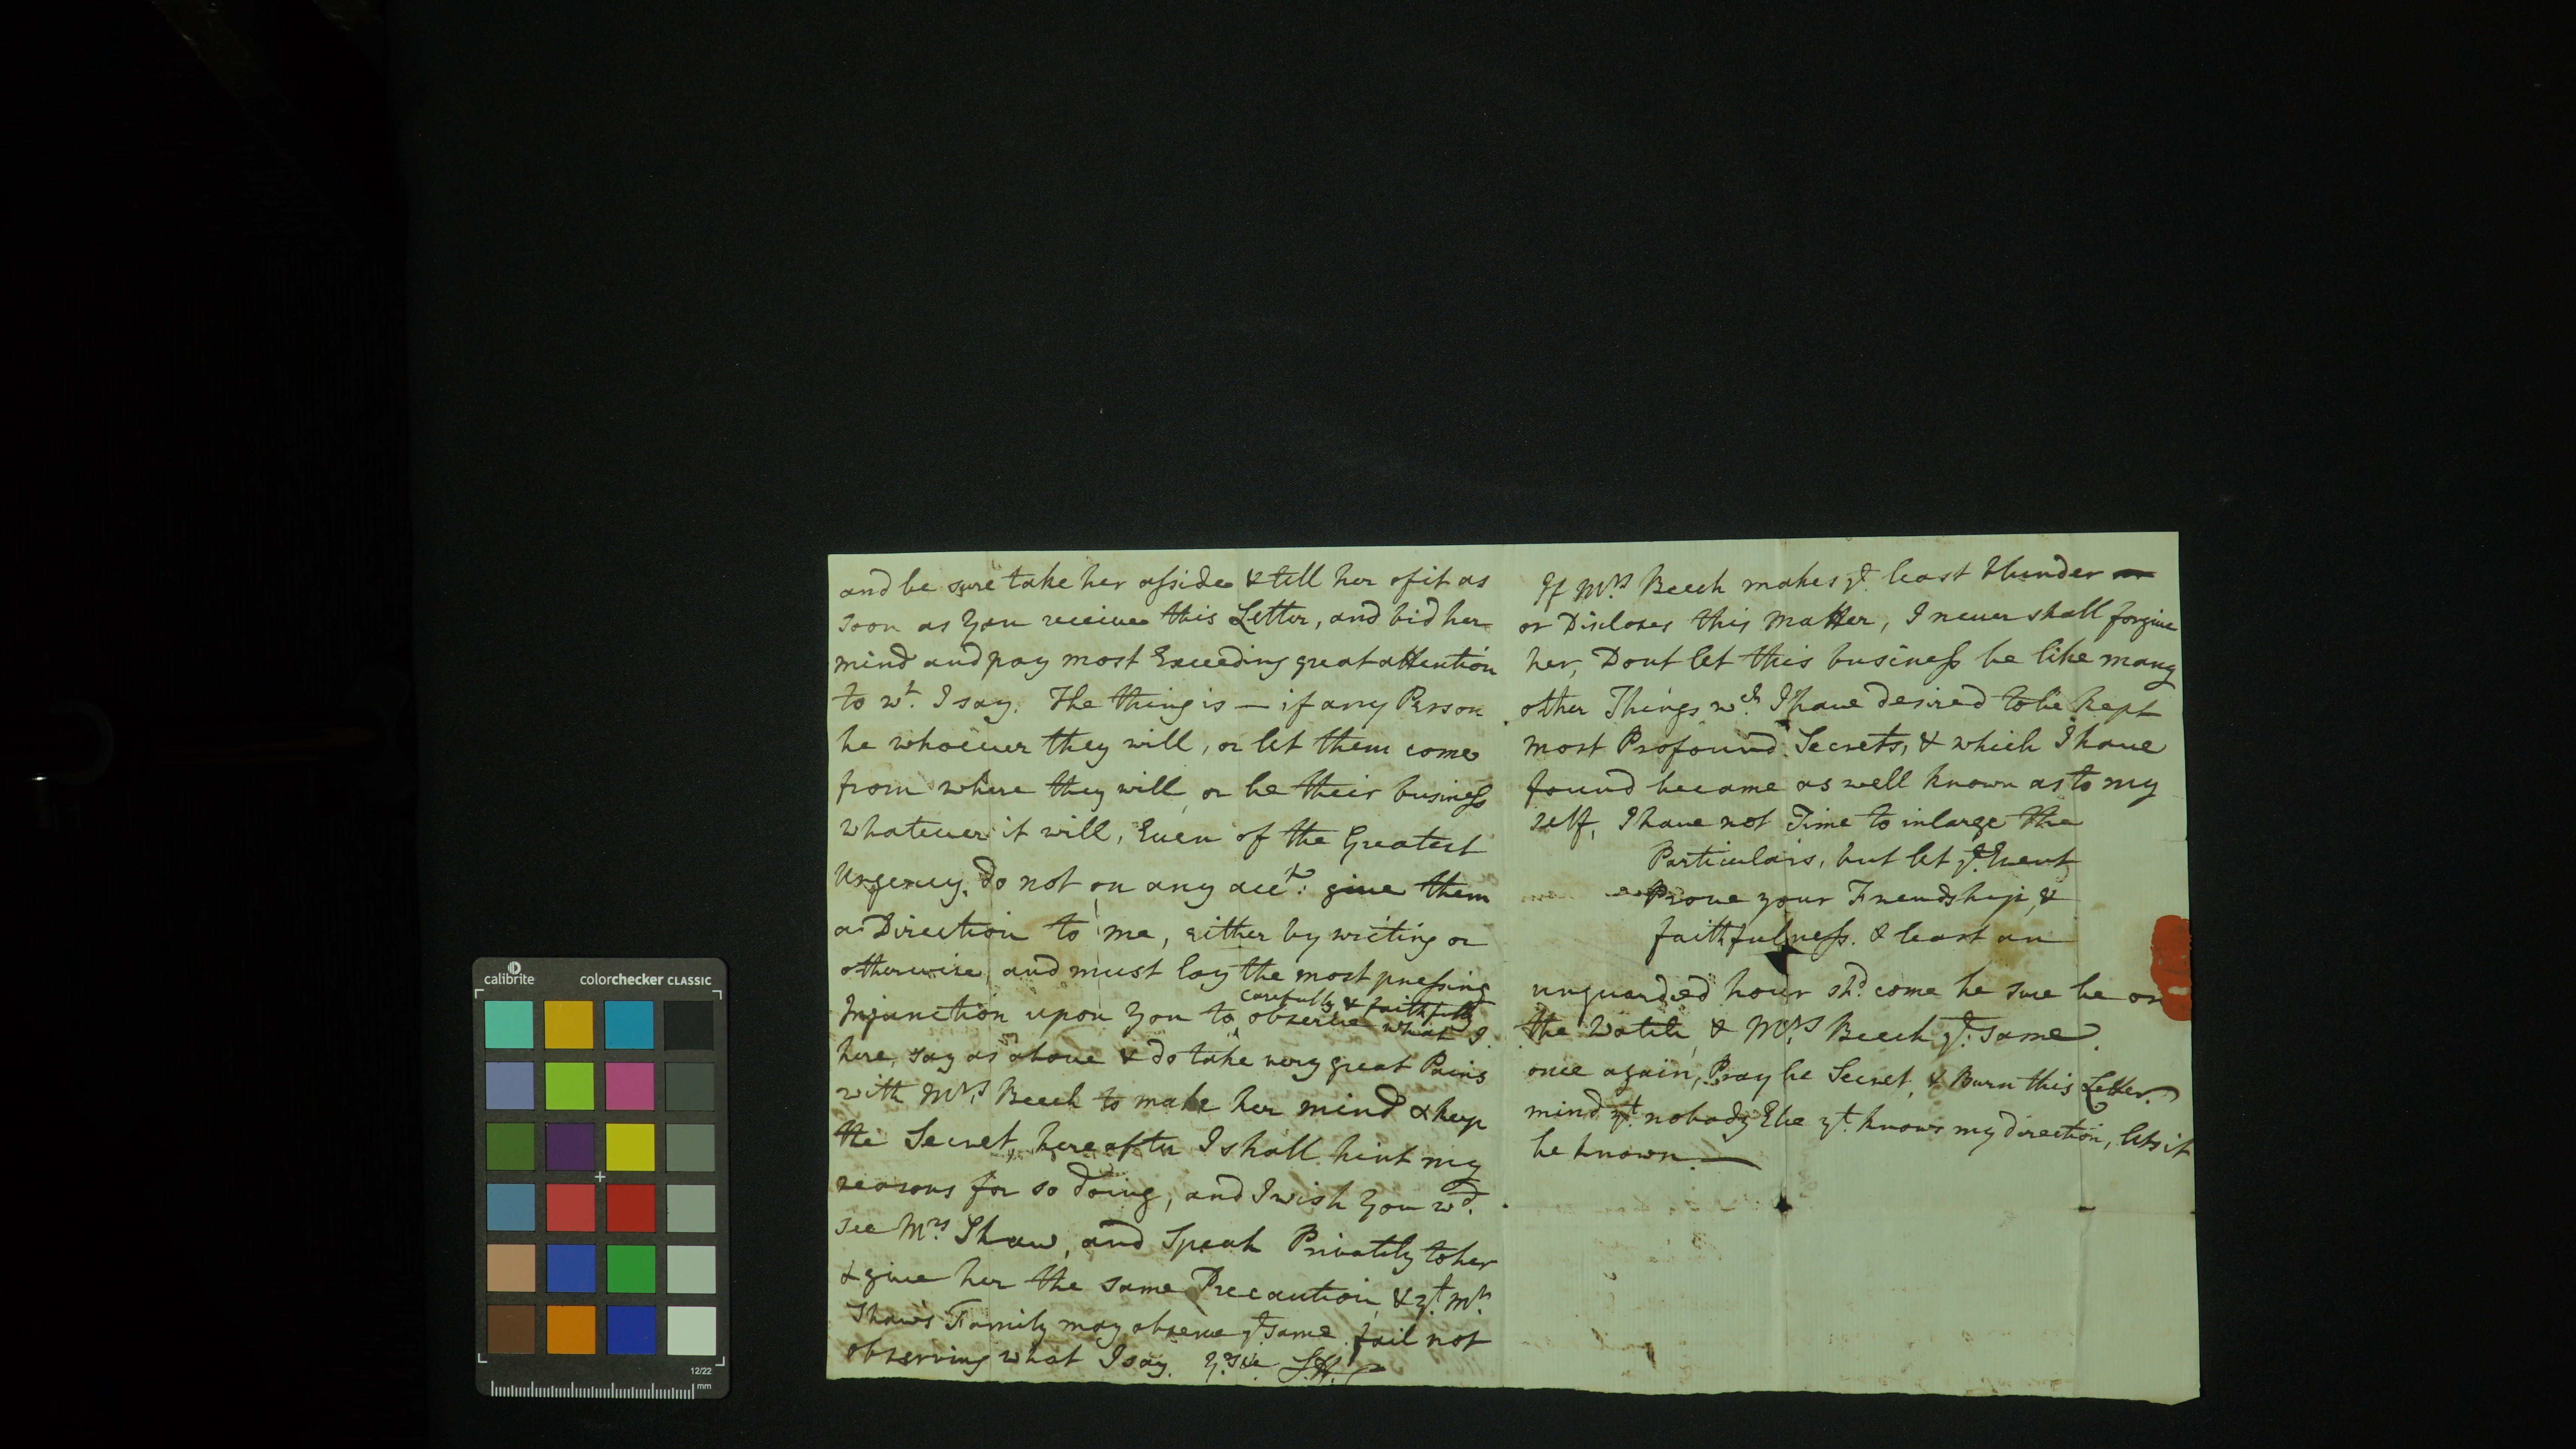 and be sure take her asside & tell her of it as
soon as you receive this Letter, and bid her
mind and pay most Exceeding great attention
to wt. I say. The thing is — if any Person
be whoever they will, or let them come
from where they will or be their business
whatever it will, Even of the Greatest
Urgency, do not on any acct: give them
a Direction to me, either by writing or
otherwise, and must lay the most pressing
carefully & faithfully
Injunction upon you to observe what I
here, say as above & do take very great Pains
with Mrs. Beech to make her mind & keep
the Secret, hereafter I shall hint my
reasons for so doing, and I wish you wd.
see Mrs Shaw, and Speak Privately to her
& give her the same Precaution, & yt. Mr.
Shaw's Family may observe ye same fail not
observing what I say. Yrs &c
If Mrs Beech makes ye. least blunder
or Discloses this Matter, I never shall forgive
her, Dont let this business be like many
other Things wch. I have desired to be kept
most Profound Secrets, & which I have
found became as well known as to my
self, I have not Time to inlarge the
Particulars, but let ye. Event
Prove your Friendship, &
faithfulness. & least an
unguarded hour shd. come be sure be on
the Watch, & Mrs Beech ye. same.
once again, Pray be Secret, & Burn this Letter.
mind yt. nobody Else yt. knows my direction, lets it
be known. —
calibrite
colorchecker CLASSIC
12/22
mm